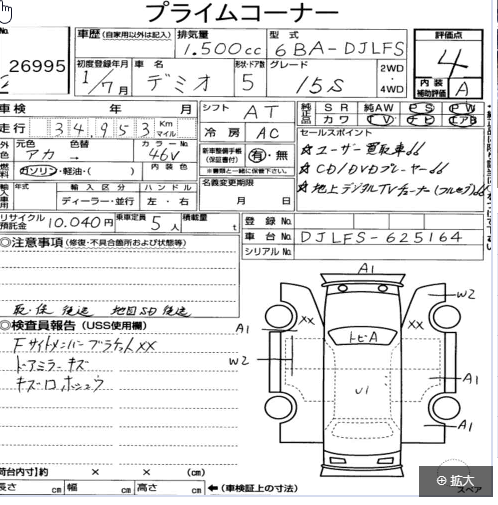 プライムコーナー
No.
26995
車歴 (自家用以外は記入)
排気量
1.500cc
型式
6BA-DJLFS
評価点
4
初度登録年月
1/7月
車名
デミオ
形状・ドア数
5
グレード
15S
2WD
4WD
内装
補助評価
A
車検 年 月
シフト
AT
純正品
SR
純AW
PS
PW
カワ
TV
ナビ
エアB
走行
34,953
Km
マイル
冷房
AC
セールスポイント
☆ユーザー買取車!!
☆CD/DVDプレーヤー!!
☆地上デジタルTVチューナー(フルセグ)!!
外色
元色
アカ
色替
→
カラーNo.
46V
内装色
新車整備手帳
(保証書付)
有・無
※書類と一緒に保管下さい。
燃料
ガソリン・軽油・( )
輸入車用
年式
輸入区分
ディーラー・並行
ハンドル
左・右
名義変更期限
月 日
リサイクル
預託金
10.040円
乗車定員
5人
積載量
t
登録No.
車台No.
DJLFS-625164
シリアルNo.
◎注意事項 (修復・不具合箇所および状態等)
取・保 後送 地図SD後送
◎検査員報告 (USS使用欄)
Fサイドメンバーブラケットxx
ドアミラーキズ
キズ口ホシュウ
A1
W2
xx
xx
A1
トビA
W2
U1
A1
A1
荷台内寸)約 × × (cm)
長さ cm 幅 cm 高さ cm ←(車検証上の寸法)
スペア
拡大